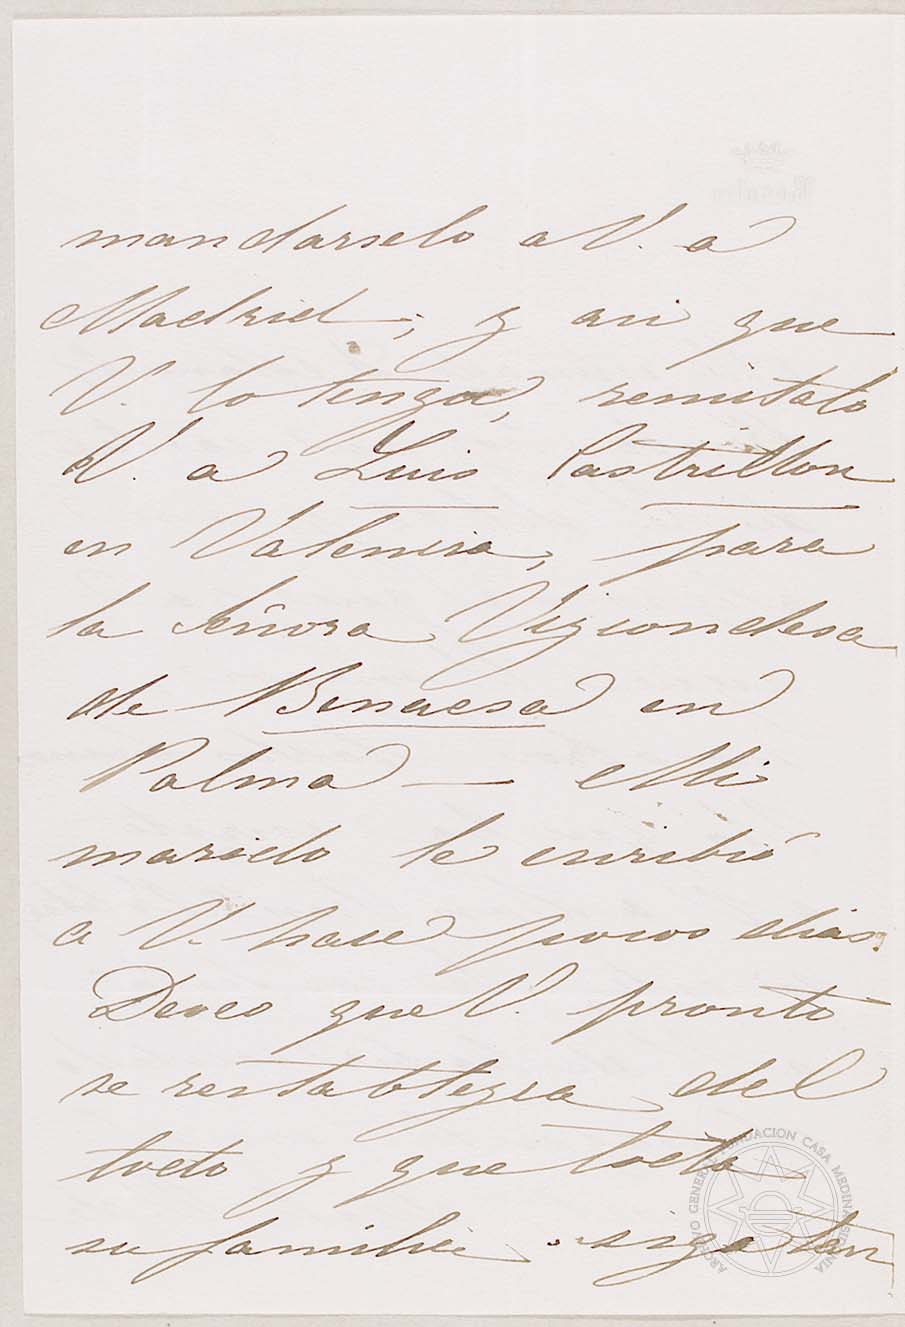 mandarselo a V. a
Madrid; y asi que
V. lo tenga, remitalo
V. a Luis Castrillon
en Valencia, para
la Señora Vizcondesa
de Benaesa en
Palma — Mi
marido le escribió
a V. hace pocos dias.
Deseo que V. pronto
se restablezca del
todo y que toda
su familia siga tan
ARCHIVO GENERAL FUNDACION CASA MEDINA SIDONIA